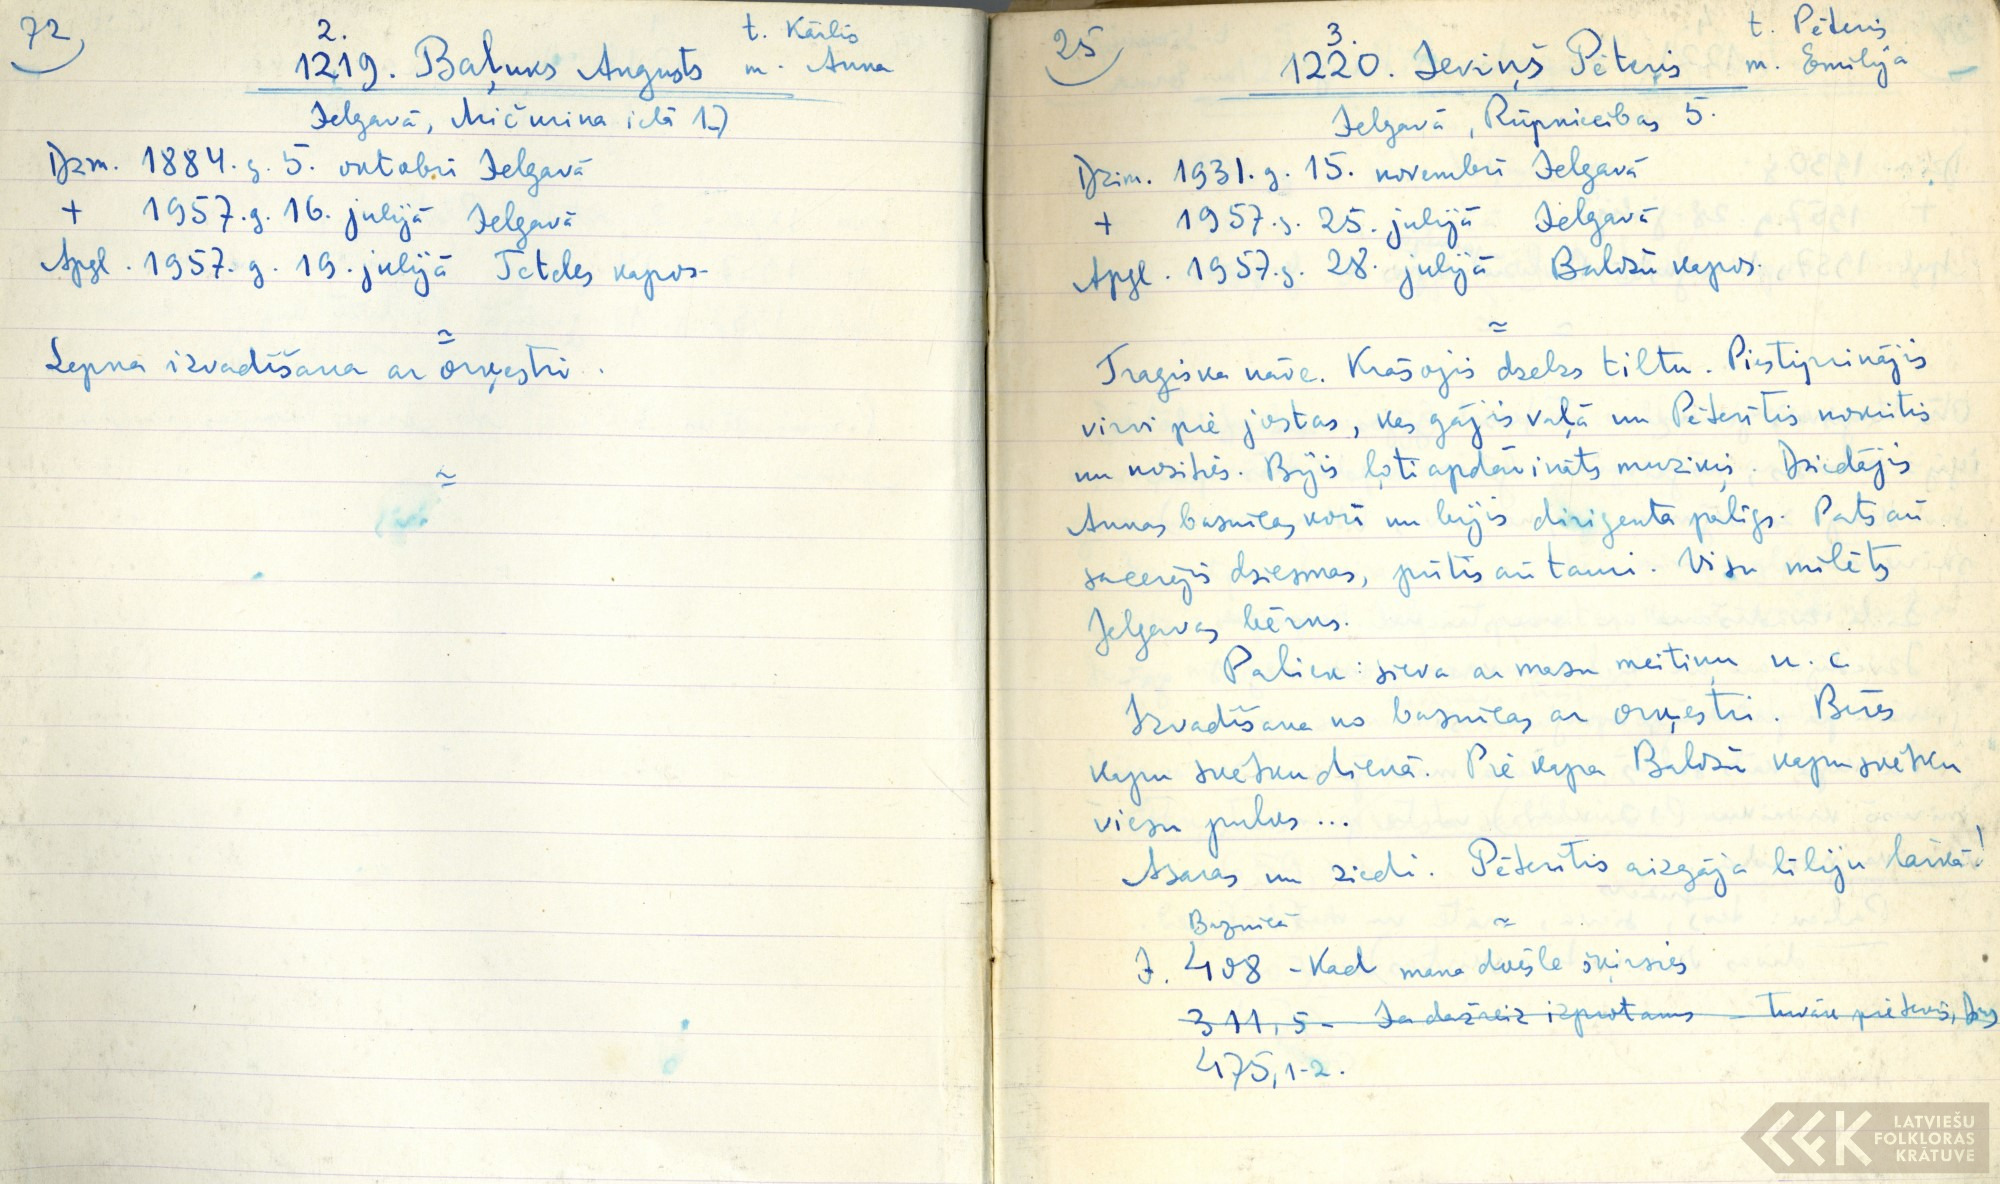 72
2.
t. Kārlis
1219. Baļuks Augusts m. Anna
Jelgavā, Mičurina ielā 17
Dzm. 1884. g. 5. oktobrī Jelgavā
+ 1957. g. 16. julijā Jelgavā
Apgl. 1957. g. 19. julijā Teteles kapos.
≈
Lepna izvadīšana ar orķestri.
≈
25
3.
t. Pēteris
1220. Ieviņš Pēteris m. Emilija
Jelgavā, Rūpniecības 5.
Dzim. 1931. g. 15. novembrī Jelgavā
+ 1957. g. 25. julijā Jelgavā
Apgl. 1957. g. 28. julijā Baložu kapos.
≈
Tragiska nāve. Krāsojis dzelzs tiltu. Piestiprinājis
virvi pie jostas, kas gājis vaļā un Pēterītis nokritis
un nosities. Bijis ļoti apdāvināts muziķis. Dziedājis
Annas baznīcas korī un bijis diriģenta palīgs. Pats arī
sacerējis dziesmas, pūtis arī tauri. Visu mīlēts
Jelgavas bērns.
Paliek: sieva ar mazu meitiņu u. c.
Izvadīšana no baznīcas ar orķestri. Bēres
kapu svētku dienā. Pie kapa Baložu kapu svētku
viesu pulks ...
Asaras un ziedi. Pēterītis aizgāja liliju laikā!
Baznīcā ≈
J. 408 - Kad mana dvēsle šķirsies
311, 5 - Ja dažreiz izprotams - Tuvāk pie Tevis, Dievs
475, 1-2.
LATVIEŠU
FOLKLORAS
KRĀTUVE